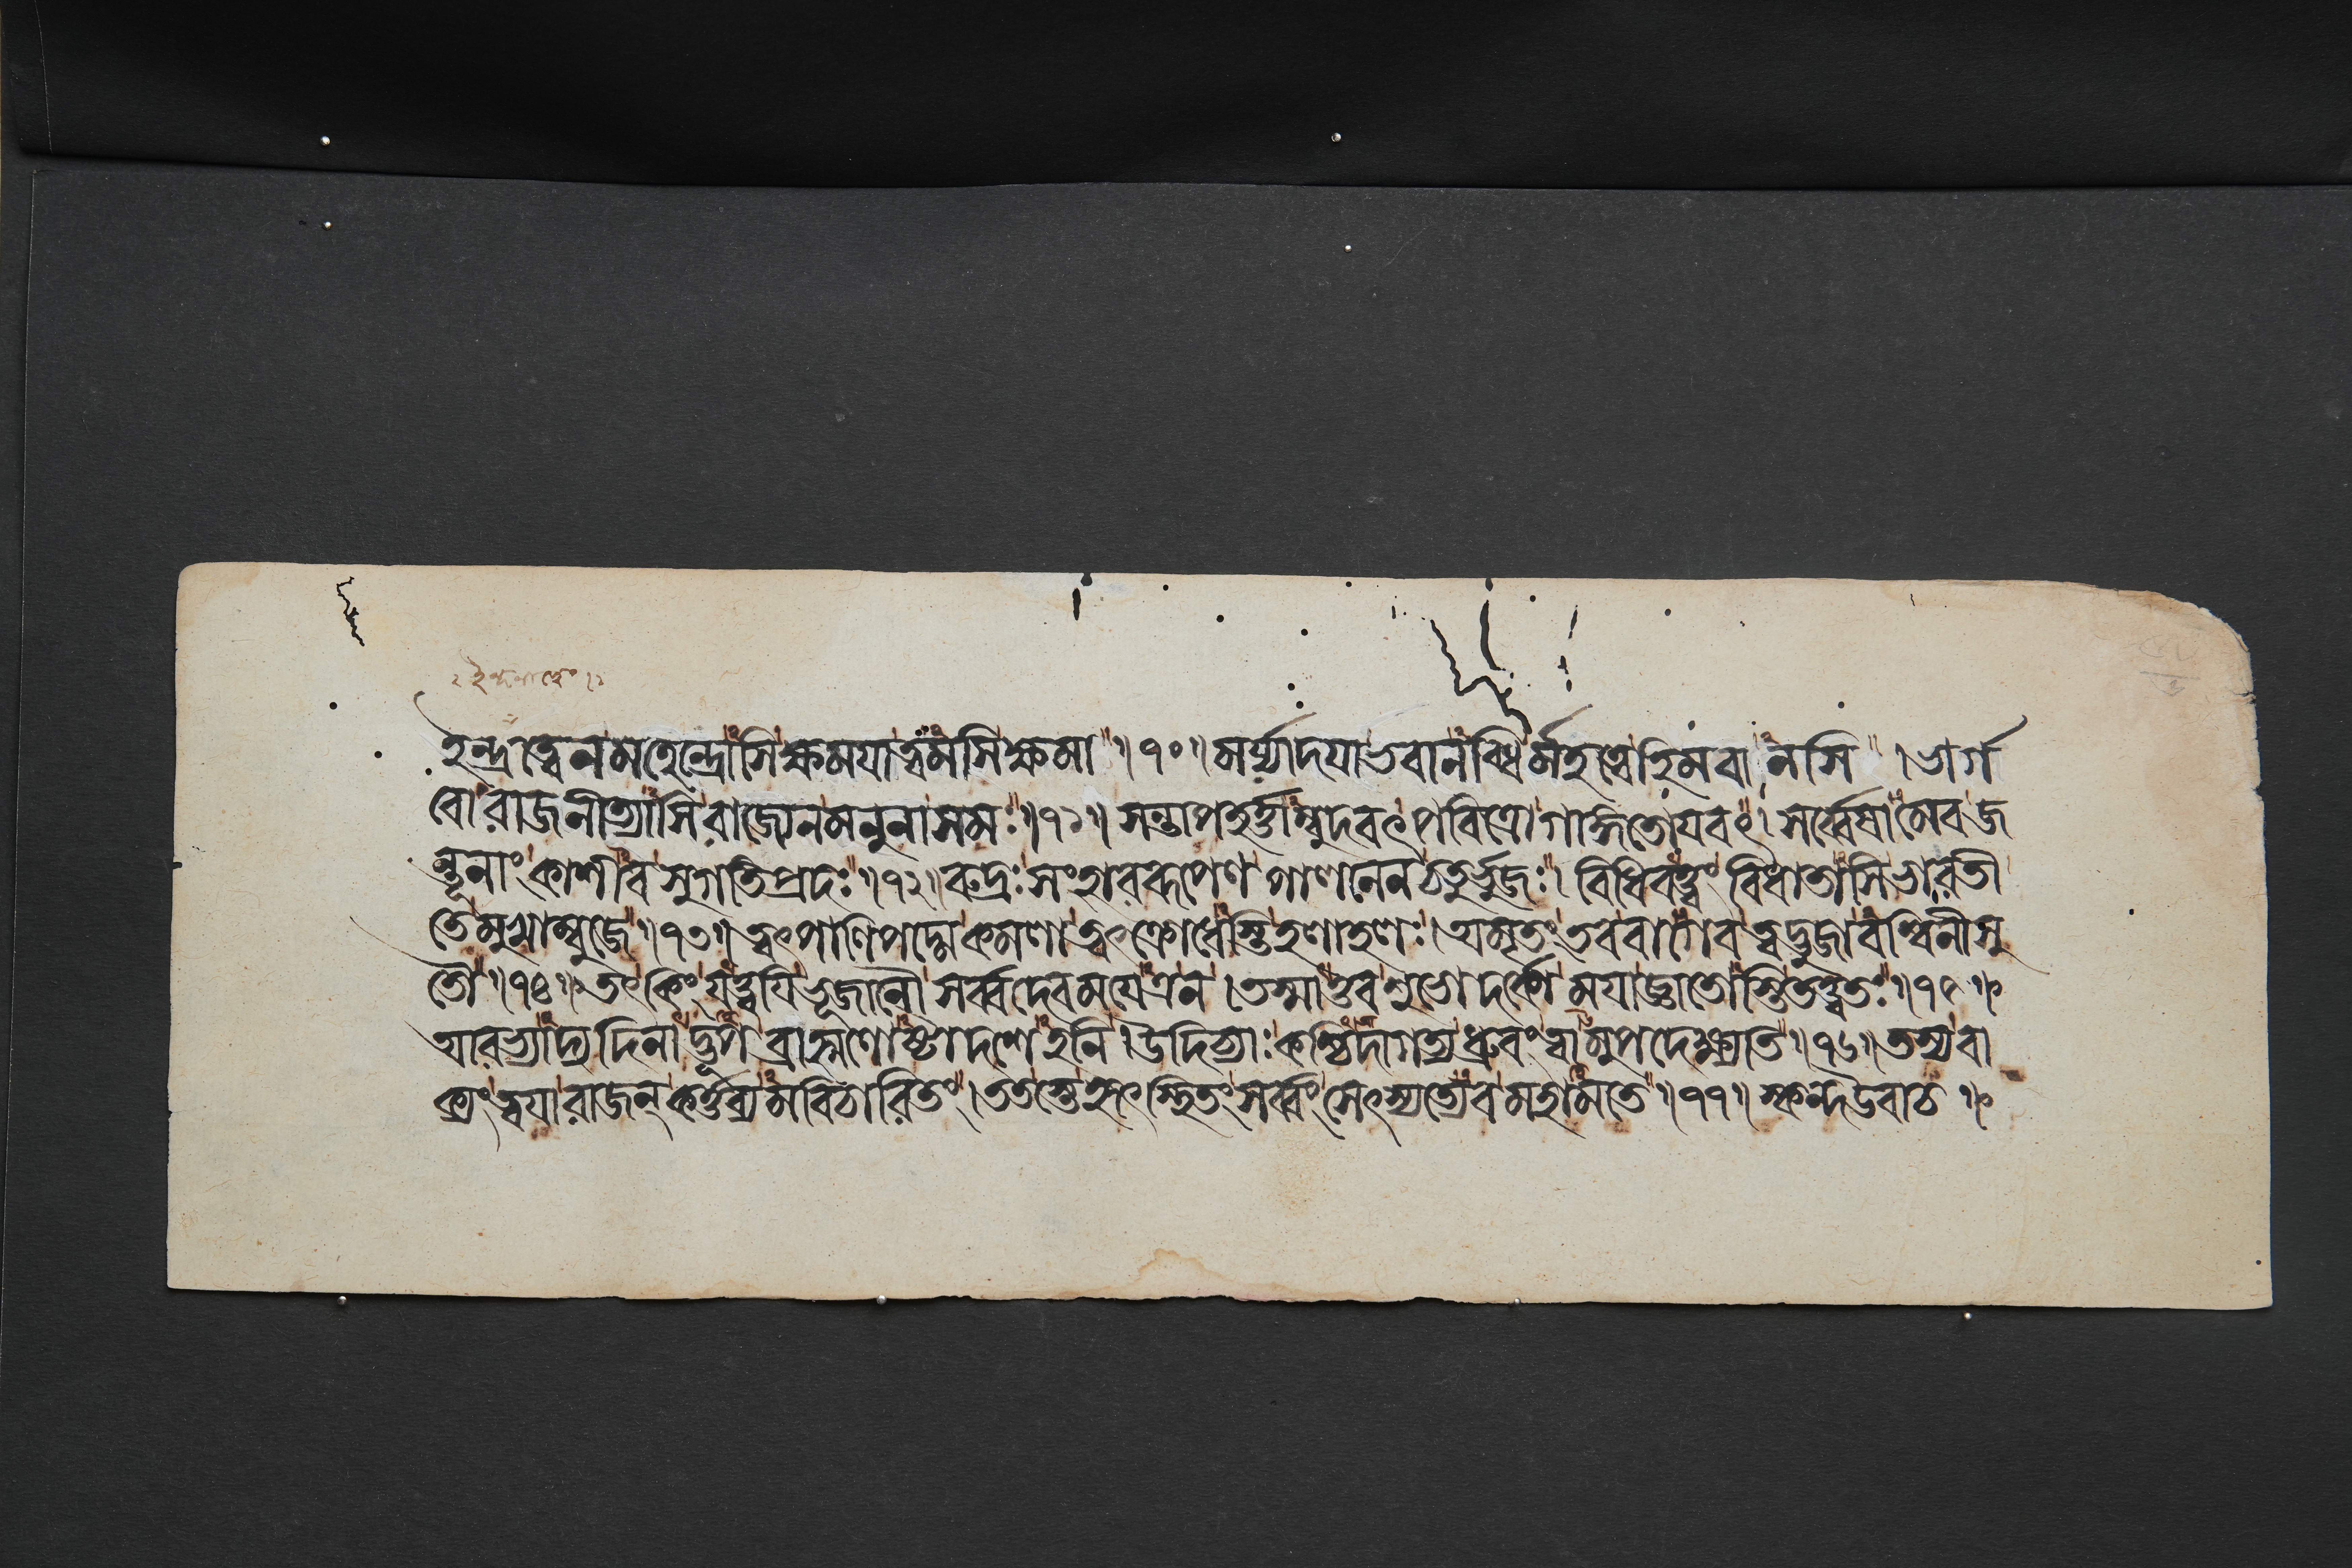 ইন্দ্রত্বেনমহেন্দ্রোসিক্ষময়াত্বমসিক্ষমা ॥৭০॥ মর্য্যাদয়াভবানব্ধির্মহত্ত্বেহিমবানসি । ভার্গ
বোরাজনীত্যাসিরাজ্যেনমনুনাসমঃ ॥৭১॥ সন্তাপহর্ত্তাম্বুদবৎপবিত্রোগাঙ্গতোয়বৎ । সর্ব্বেষামেবজ
ন্তূনাংকাশীবসুগতিপ্রদঃ ॥৭২॥ রুদ্রঃসংহাররূপেণপালনেনচতুর্ভুজঃ । বিধিবত্ত্বংবিধাতাসিভারতী
তেমুখাম্বুজে ॥৭৩॥ ত্বৎপাণিপদ্মেকমলাত্বৎক্রোধেস্তিহলাহলঃ । অমৃতংতববাগেবত্বদ্ভুজাবশ্বিনীসু
তৌ ॥৭৪॥ তৎকিংযত্ত্বয়িভূজানৌসর্ব্বদেবময়ে । তস্মাত্তবশুভোদর্কোময়াজ্ঞাতোস্তিতত্ত্বতঃ ॥৭৫॥
আরভ্যাদ্যদিনাদ্ভূপব্রাহ্মণোষ্টাদশেহনি । উদিচ্যঃকশ্চিদাগত্যধ্রুবংত্বামুপদেক্ষ্যতি ॥৭৬॥ তস্যবা
ক্যংত্বয়ারাজন্কর্ত্তব্যমবিচারিতং । ততস্তেহৃৎস্থিতংসর্ব্বংসেৎস্যত্যেবমহামতে ॥৭৭॥ স্কন্দউবাচ ॥